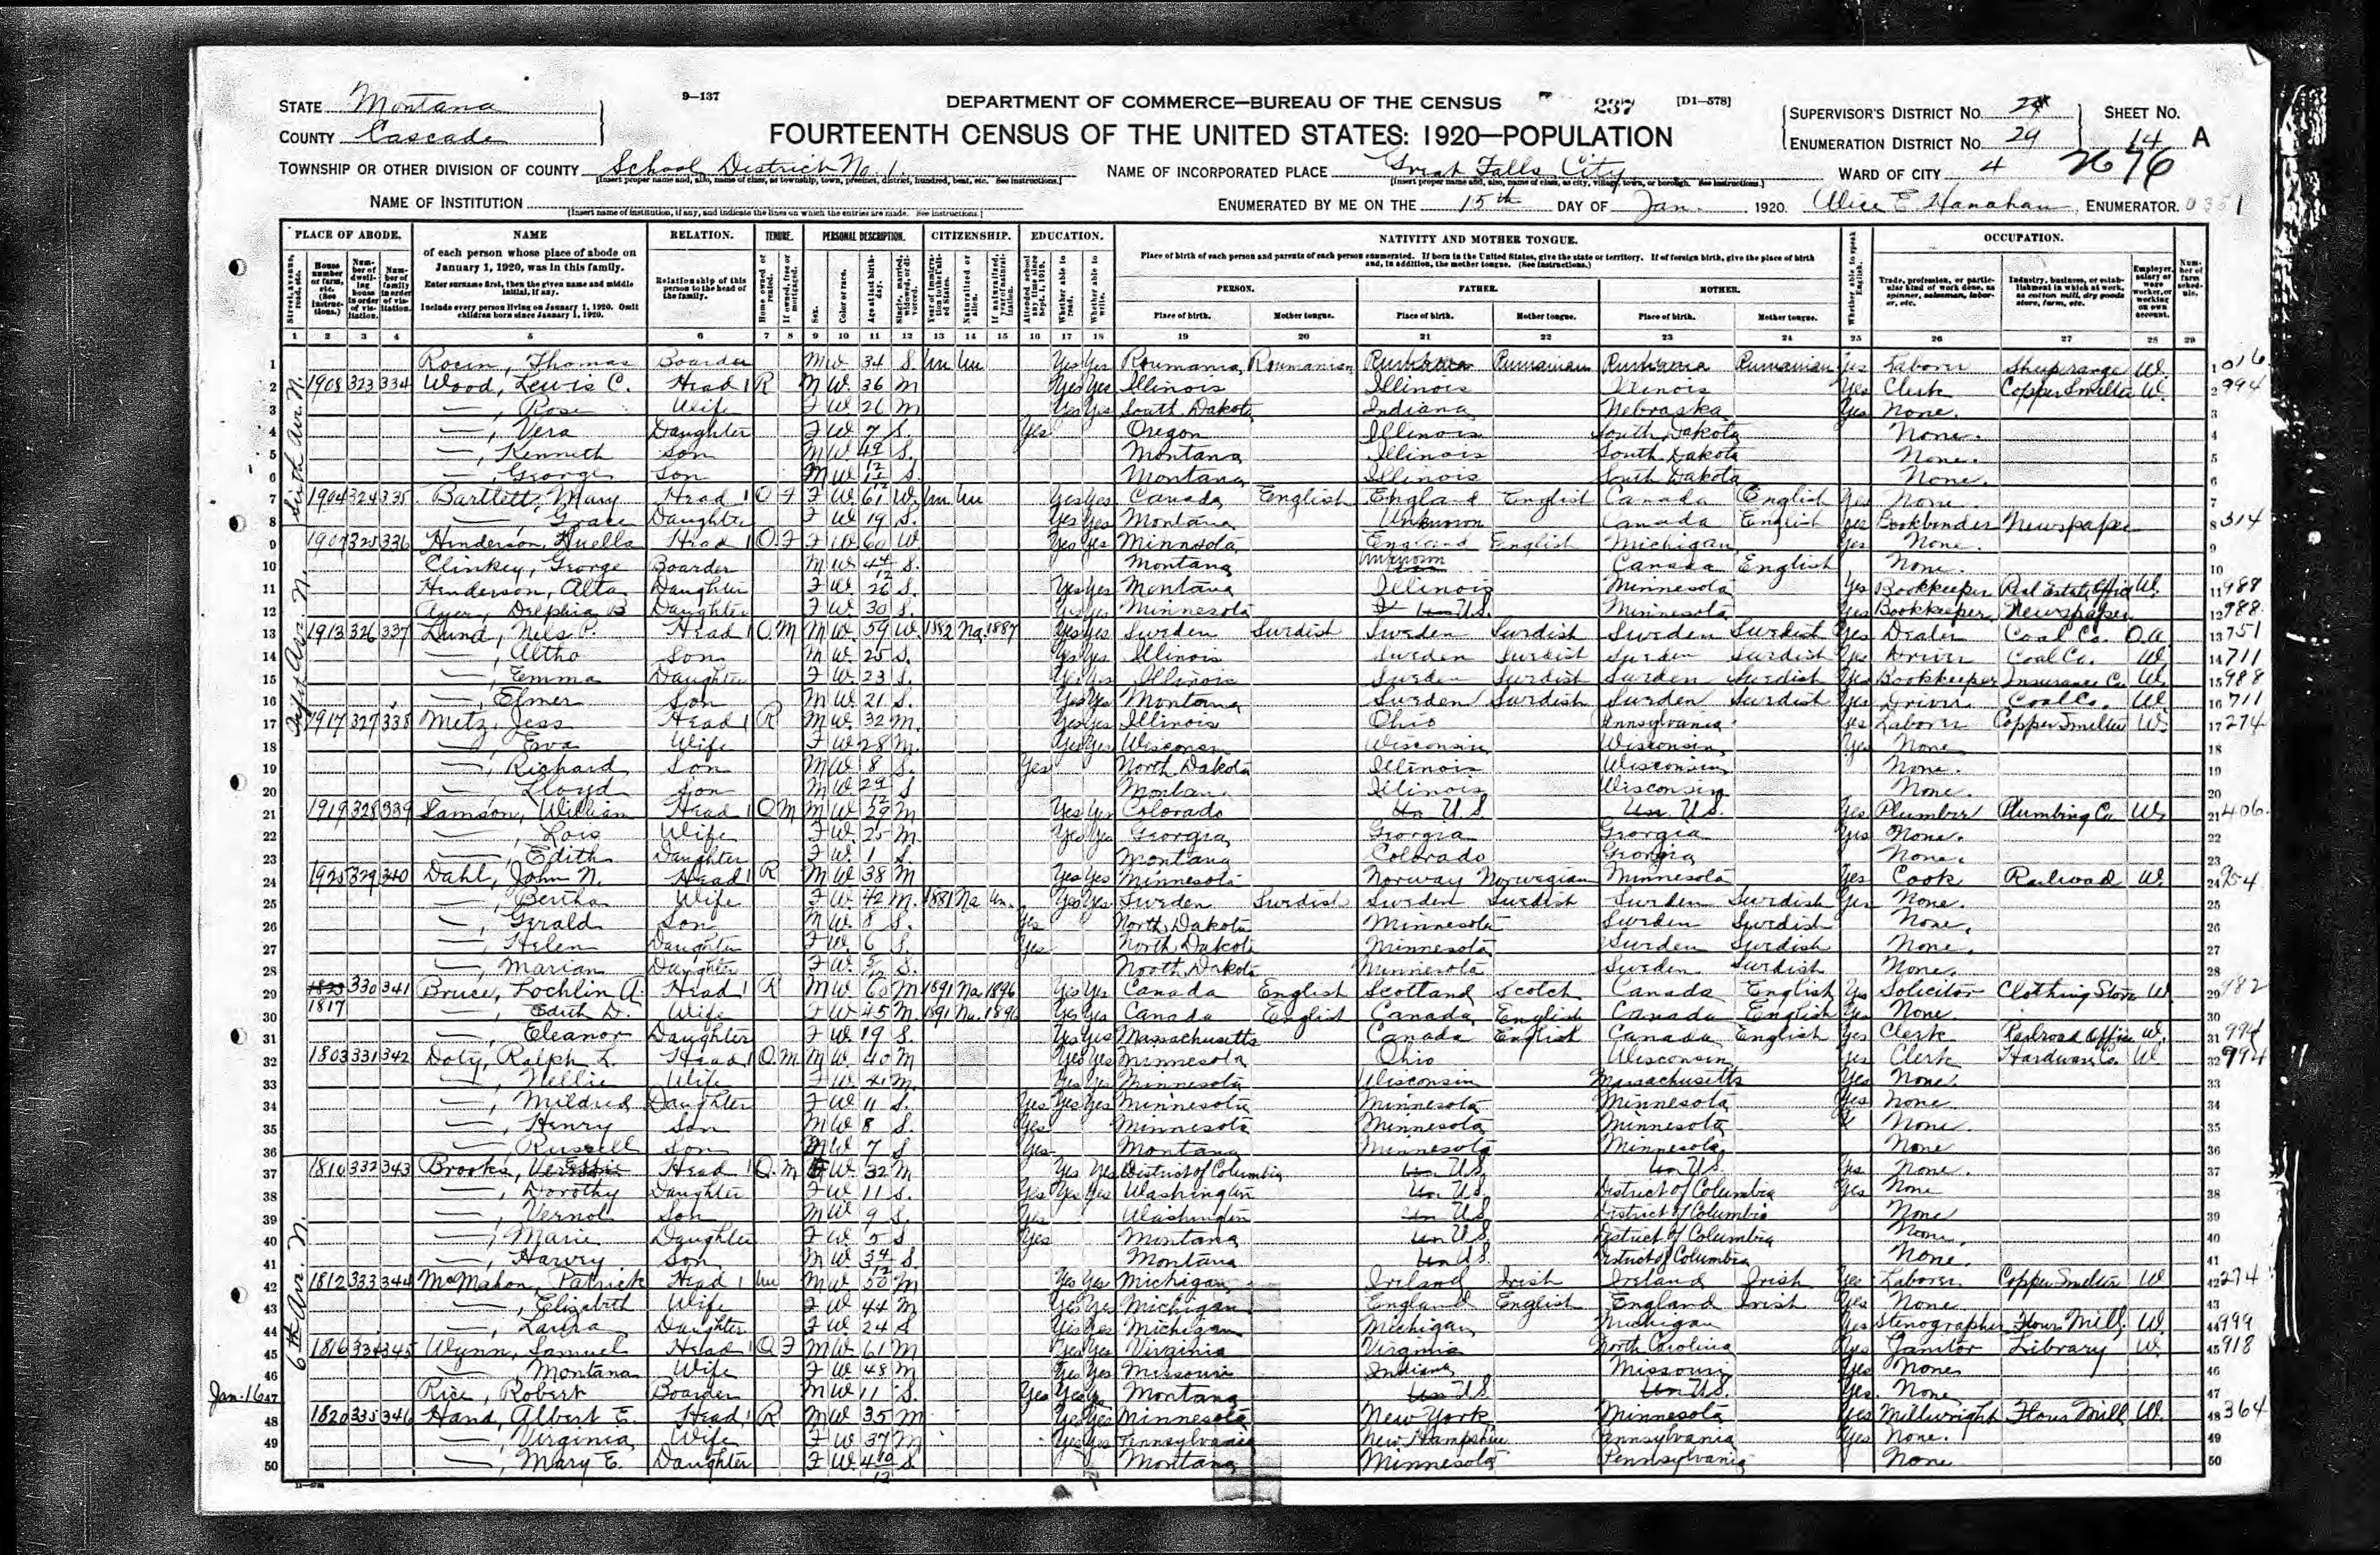 STATE Montana
COUNTY Cascade
9—137
DEPARTMENT OF COMMERCE—BUREAU OF THE CENSUS
237 [D1—578]
FOURTEENTH CENSUS OF THE UNITED STATES: 1920—POPULATION
SUPERVISOR'S DISTRICT No.
ENUMERATION DISTRICT No. 29
SHEET No. 14 A
2676
TOWNSHIP OR OTHER DIVISION OF COUNTY School District No. 1.
NAME OF INCORPORATED PLACE Great Falls City
WARD OF CITY 4
NAME OF INSTITUTION
ENUMERATED BY ME ON THE 15th DAY OF Jan. 1920. Alice E. Hanahan, ENUMERATOR.
PLACE OF ABODE. NAME RELATION. TENURE. PERSONAL DESCRIPTION. CITIZENSHIP. EDUCATION. NATIVITY AND MOTHER TONGUE. OCCUPATION.
of each person whose place of abode on January 1, 1920, was in this family.
Enter surname first, then the given name and middle initial, if any.
Include every person living on January 1, 1920. Omit children born since January 1, 1920.
Relationship of this person to the head of the family.
Place of birth of each person and parents of each person enumerated. If born in the United States, give the state or territory. If of foreign birth, give the place of birth and, in addition, the mother tongue. (See instructions.)
PERSON. FATHER. MOTHER.
Place of birth. Mother tongue. Place of birth. Mother tongue. Place of birth. Mother tongue.
1 2 3 4 5 6 7 8 9 10 11 12 13 14 15 16 17 18 19 20 21 22 23 24 25 26 27 28 29
1 Thomas Boarder M W 34 S Un Un Yes Yes Roumania Roumanian Rumanian Rumanian Yes Laborer W. 1
2 1908 323 334 Wood, Lewis C. Head 1 R M W 36 M Yes Yes Illinois Illinois Illinois Yes Clerk Copper Smelter W. 2 994
3 —, Rose Wife F W 26 M Yes Yes South Dakota Indiana Nebraska Yes None. 3
4 —, Vera Daughter F W 7 S. Yes Oregon Illinois South Dakota None. 4
5 —, Kenneth Son M W S. Montana Illinois South Dakota None. 5
6 —, George Son M W S Montana Illinois South Dakota None. 6
7 1904 324 335 Bartlett, Mary Head 1 O F F W 61 W Un Un Yes Yes Canada English England English Canada English Yes None 7
8 —, Grace Daughter F W 19 S. Yes Yes Montana Unknown Canada English Yes Bookbinder Newspaper 8 314
9 325 336 Henderson, Head 1 O F F W 60 W Yes Yes Minnesota England English Michigan Yes None. 9
10 George Boarder M W S. Montana Unknown Canada English None. 10
11 Henderson, Alta Daughter F W 26 S Yes Yes Montana Illinois Minnesota Yes Bookkeeper Real Estate Office W. 11 988
12 Delphia B Daughter F W 30 S. Yes Yes Minnesota U.S. Minnesota Yes Bookkeeper Newspaper 12 988
13 1913 326 337 Lund, Nels P. Head 1 O M M W. 59 W. 1882 Na. 1887 Yes Yes Sweden Swedish Sweden Swedish Sweden Swedish Yes Dealer Coal Co. O.A 13 751
14 —, Altho Son M W. 25 S. Yes Yes Illinois Sweden Swedish Sweden Swedish Yes Driver Coal Co. W 14 711
15 —, Emma Daughter F W. 23 S. Yes Yes Illinois Sweden Swedish Sweden Swedish Yes Bookkeeper Insurance Co W. 15 988
16 —, Elmer Son M W. 21 S. Yes Yes Montana Sweden Swedish Sweden Swedish Yes Driver Coal Co. W. 16 711
17 1917 327 338 Metz, Jess Head 1 R M W. 32 M. Yes Yes Illinois Ohio Pennsylvania Yes Laborer Copper Smelter W. 17 274
18 —, Eva Wife F W 28 M. Yes Yes Wisconsin Wisconsin Wisconsin Yes None 18
19 —, Richard Son M W 8 S. Yes North Dakota Illinois Wisconsin None. 19
20 —, Lloyd Son M W S Montana Illinois Wisconsin None. 20
21 1919 328 339 Samson, William Head 1 O M M W 29 M Yes Yes Colorado U S Un. U.S. Yes Plumber Plumbing Co W. 21 406
22 —, Lois Wife F W. 25 M. Yes Yes Georgia Georgia Georgia Yes None. 22
23 —, Edith Daughter F W. 1 S. Montana Colorado Georgia None. 23
24 1925 329 340 Dahl, John N. Head 1 R M W. 38 M Yes Yes Minnesota Norway Norwegian Minnesota Yes Cook Railroad W. 24 954
25 —, Bertha Wife F W. 42 M. 1881 Na Un. Yes Yes Sweden Swedish Sweden Swedish Sweden Swedish Yes None. 25
26 —, Gerald Son M W. 8 S. Yes North Dakota Minnesota Sweden Swedish None. 26
27 —, Helen Daughter F W. 6 S. Yes North Dakota Minnesota Sweden Swedish None. 27
28 —, Marian Daughter F W. S. North Dakota Minnesota Sweden Swedish None. 28
29 330 341 Bruce, Lochlin A. Head 1 R M W. 60 M 1891 Na. 1896 Yes Yes Canada English Scotland Scotch Canada English Yes Solicitor Clothing Store W 29 982
30 1817 —, Edith D. Wife F W 45 M. 1891 Na. 1896 Yes Yes Canada English Canada English Canada English Yes None 30
31 —, Eleanor Daughter F W 19 S. Yes Yes Massachusetts Canada English Canada English Yes Clerk Railroad Office W. 31 994
32 1803 331 342 Doty, Ralph L. Head 1 O M M W. 40 M Yes Yes Minnesota Ohio Wisconsin Yes Clerk Hardware Co. W. 32 994
33 —, Nellie Wife F W. 41 M. Yes Yes Minnesota Wisconsin Massachusetts Yes None 33
34 —, Mildred Daughter F W 11 S. Yes Yes Yes Minnesota Minnesota Minnesota Yes None 34
35 —, Henry Son M W 8 S. Yes Minnesota Minnesota Minnesota None. 35
36 —, Russell Son M W 7 S Yes Montana Minnesota Minnesota None 36
37 1810 332 343 Brooks, Head 1 O. M W. 32 M Yes Yes District of Columbia Un U.S. Un U.S. Yes None. 37
38 —, Dorothy Daughter F W 11 S. Yes Yes Yes Washington Un U.S. District of Columbia Yes None 38
39 —, Vernol Son M W 9 S. Yes Washington Un U.S District of Columbia None 39
40 —, Marie Daughter F W. 5 S Yes Montana Un U.S. District of Columbia None. 40
41 —, Harvey Son M W. S. Montana Un U.S. District of Columbia None. 41
42 1812 333 344 McMahon, Patrick Head 1 Un M W 50 M Yes Yes Michigan Ireland Irish Ireland Irish Yes Laborer Copper Smelter W 42 274
43 —, Elizabeth Wife F W 44 M Yes Yes Michigan England English England Irish Yes None 43
44 —, Laura Daughter F W. 24 S Yes Yes Michigan Michigan Michigan Yes Stenographer Flour Mill W. 44 999
45 1816 334 345 Wynn, Samuel Head 1 O F M W 61 M Yes Yes Virginia Virginia North Carolina Yes Janitor Library W. 45 918
46 —, Montana Wife F W. 48 M Yes Yes Missouri Indiana Missouri Yes None 46
Jan. 16 47 Rice, Robert Boarder M W 11 S. Yes Yes Yes Montana Un U.S. Un U.S. Yes. None 47
48 1820 335 346 Hand, Albert E. Head 1 R M W. 35 M Yes Yes Minnesota New York Minnesota Yes Millwright Flour Mill W. 48 364
49 —, Virginia Wife F W. 37 M Yes Yes Pennsylvania New Hampshire Pennsylvania Yes None. 49
50 —, Mary E. Daughter F W. 4 10/12 S Montana Minnesota Pennsylvania None 50
6th Av. N.